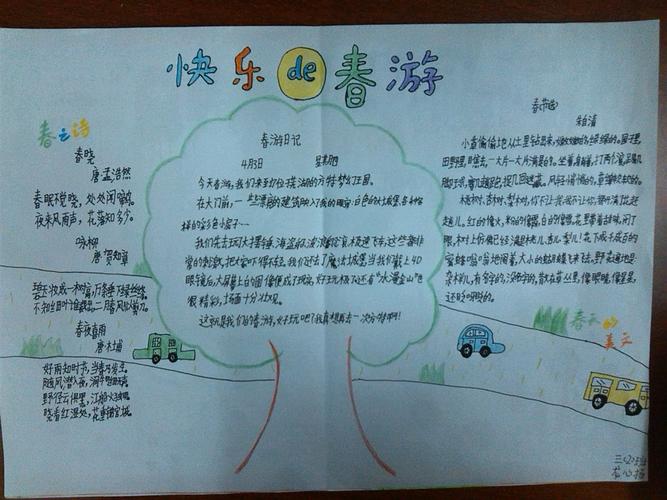 快乐de春游
春之诗
春晓
唐孟浩然
春眠不觉晓，处处闻啼鸟。
夜来风雨声，花落知多少。
咏柳
唐 贺知章
碧玉妆成一树高，万条垂下绿丝绦。
不知细叶谁裁出，二月春风似剪刀。
春夜喜雨
唐 杜甫
好雨知时节，当春乃发生。
随风潜入夜，润物细无声。
野径云俱黑，江船火独明。
晓看红湿处，花重锦官城。
春游日记
4月3日 星期四
今天春游，我们来到位于芜湖的方特梦幻王国。
在大门前，一些漂亮的建筑映入我的眼帘：白色的大城堡、各种各
样的彩色小房子…
我们先去玩大摆锤、海盗船、波浪翻滚和极速飞车，这些都非
常的刺激，把大家吓得不轻。我们还去了魔法城堡，当我们戴上4D
眼镜后，大屏幕上的图像便成了现实，好玩极了，还有“水漫金山”也
很精彩，场面十分壮观。
这就是我们的春游，好玩吧？我真想再去一次方特啊！
春（节选）
朱自清
小草偷偷地从土里钻出来，嫩嫩的，绿绿的。园子里，
田野里，瞧去，一大片一大片满是的。坐着，躺着，打两个滚，踢几
脚球，赛几趟跑，捉几回迷藏。风轻悄悄的，草软绵绵的。
桃树、杏树、梨树，你不让我，我不让你，都开满了花赶
趟儿。红的像火，粉的像霞，白的像雪。花里带着甜味，闭了
眼，树上仿佛已经满是桃儿、杏儿、梨儿！花下成千成百的
蜜蜂嗡嗡地闹着，大小的蝴蝶飞来飞去。野花遍地是：
杂样儿，有名字的，没名字的，散在草丛里，像眼睛，像星星，
还眨呀眨的。
春天的
美文
三(2)班